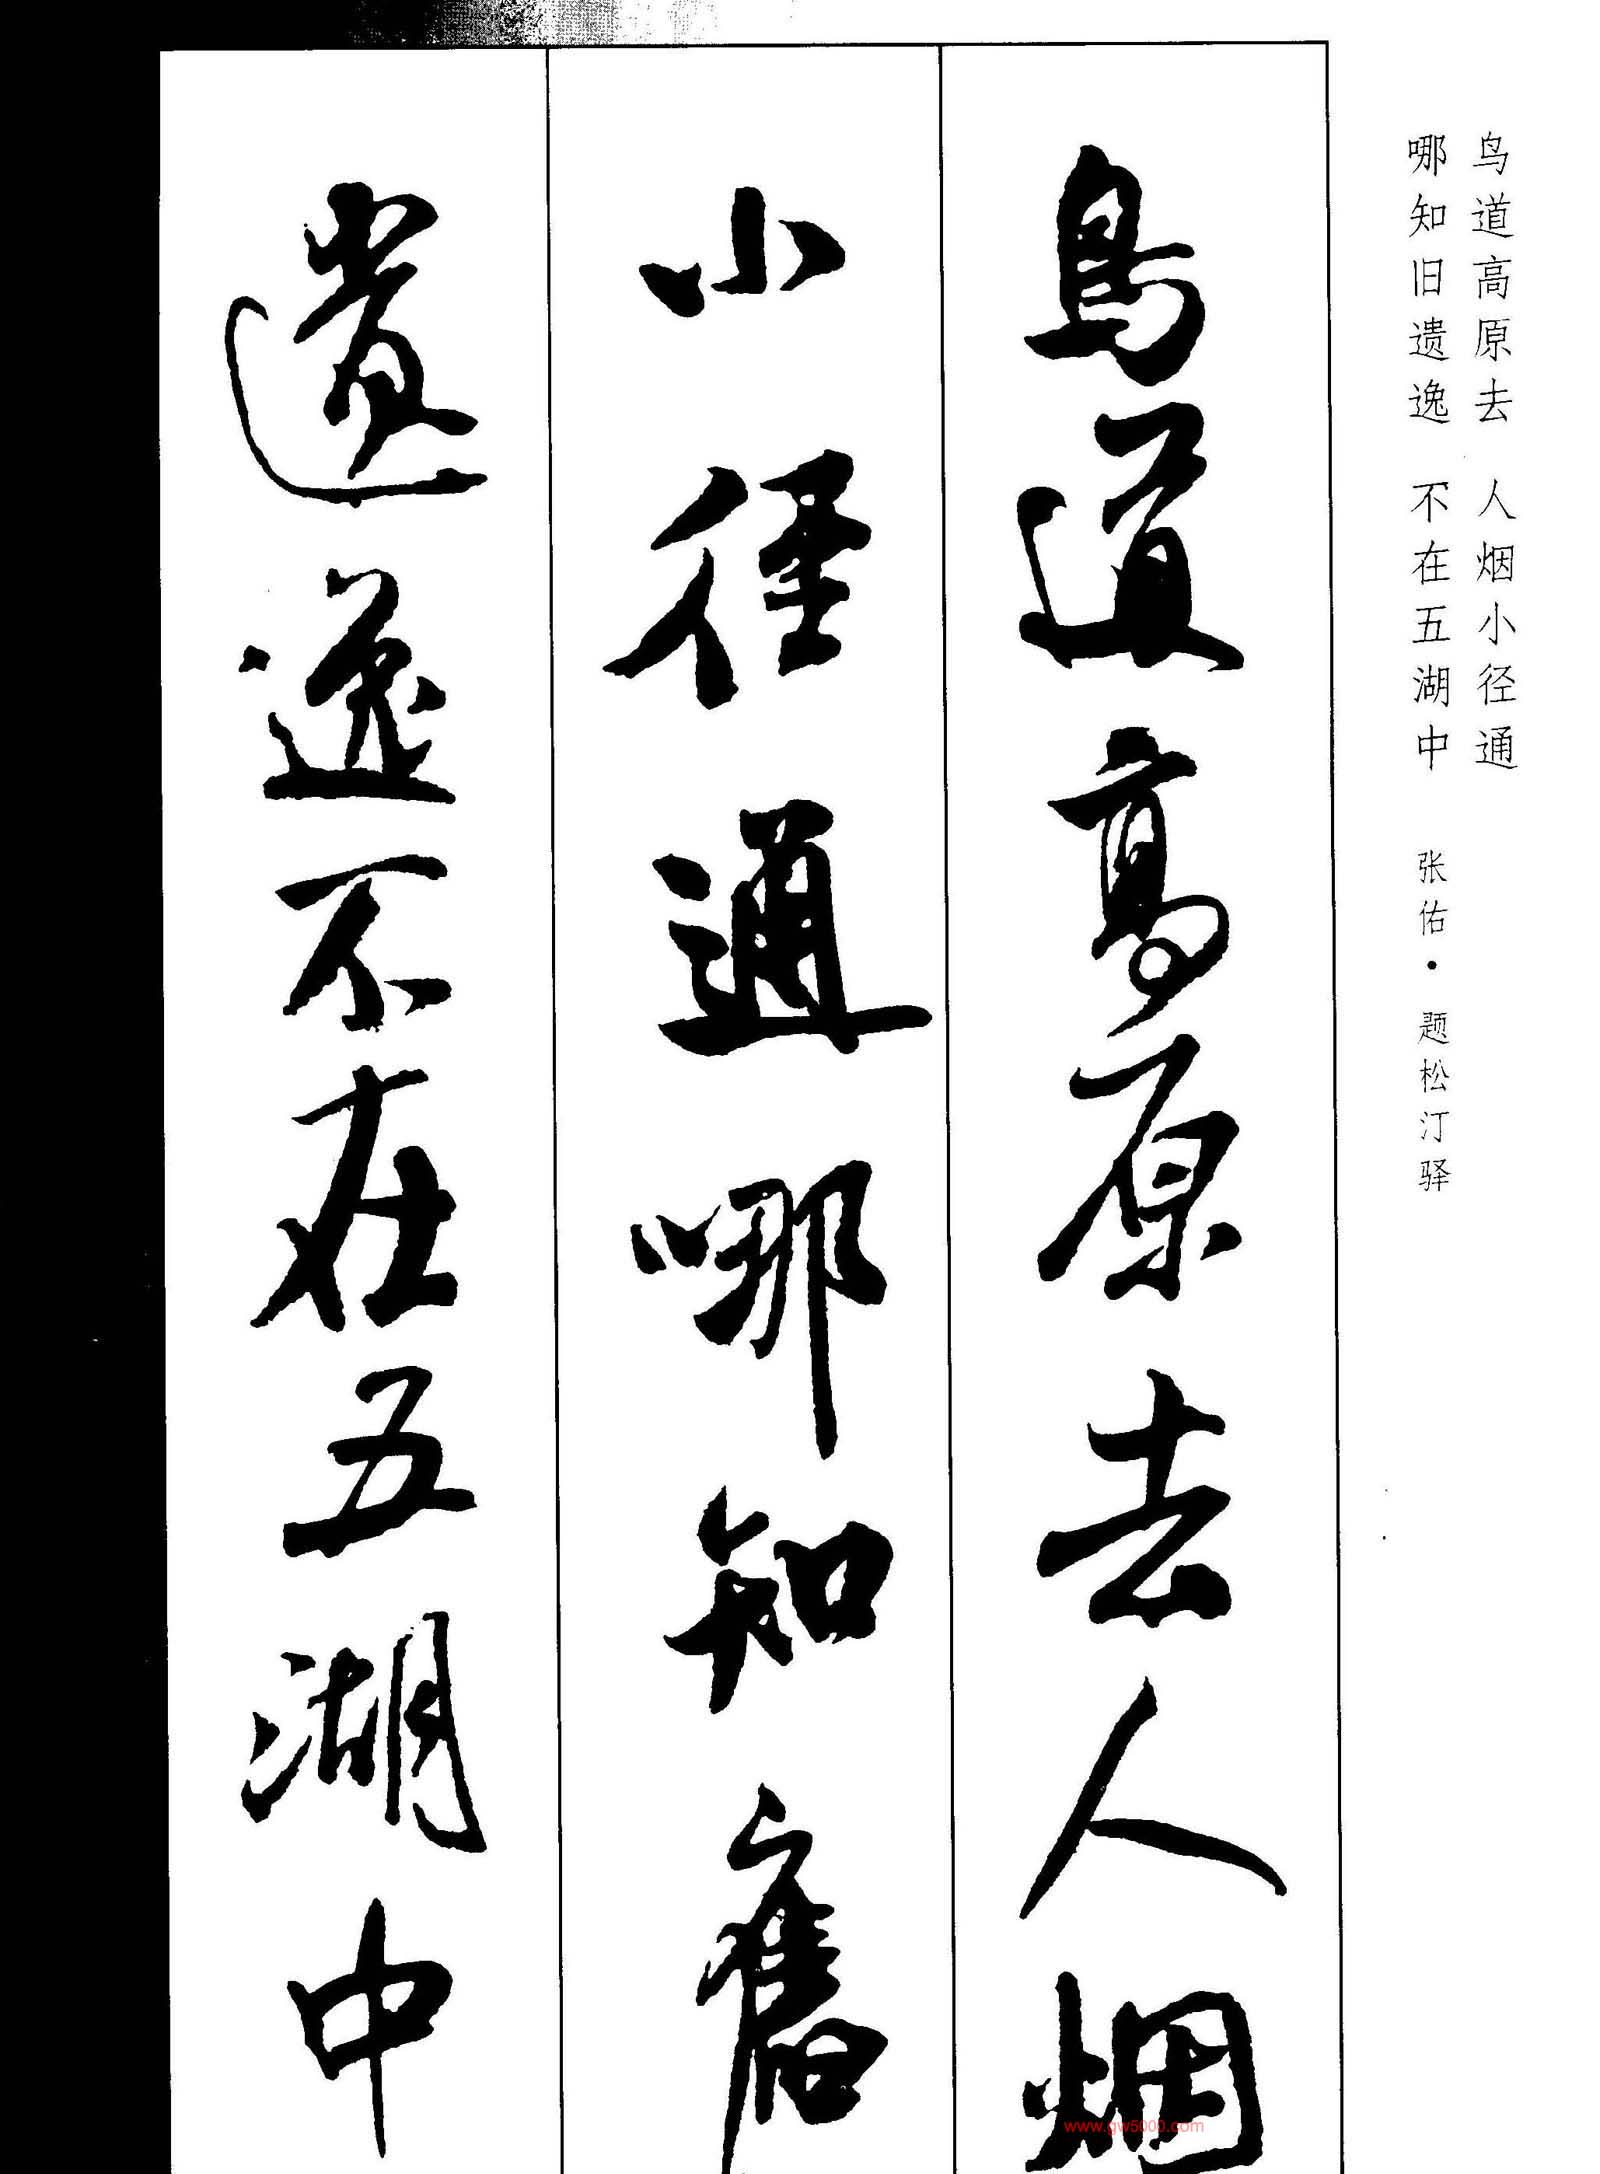 鸟道高原去 人烟小径通
哪知旧遗逸 不在五湖中 张佑·题松汀驿
鳥道高原去人烟
小徑通哪知舊
遺逸不在五湖中
www.gw5000.com